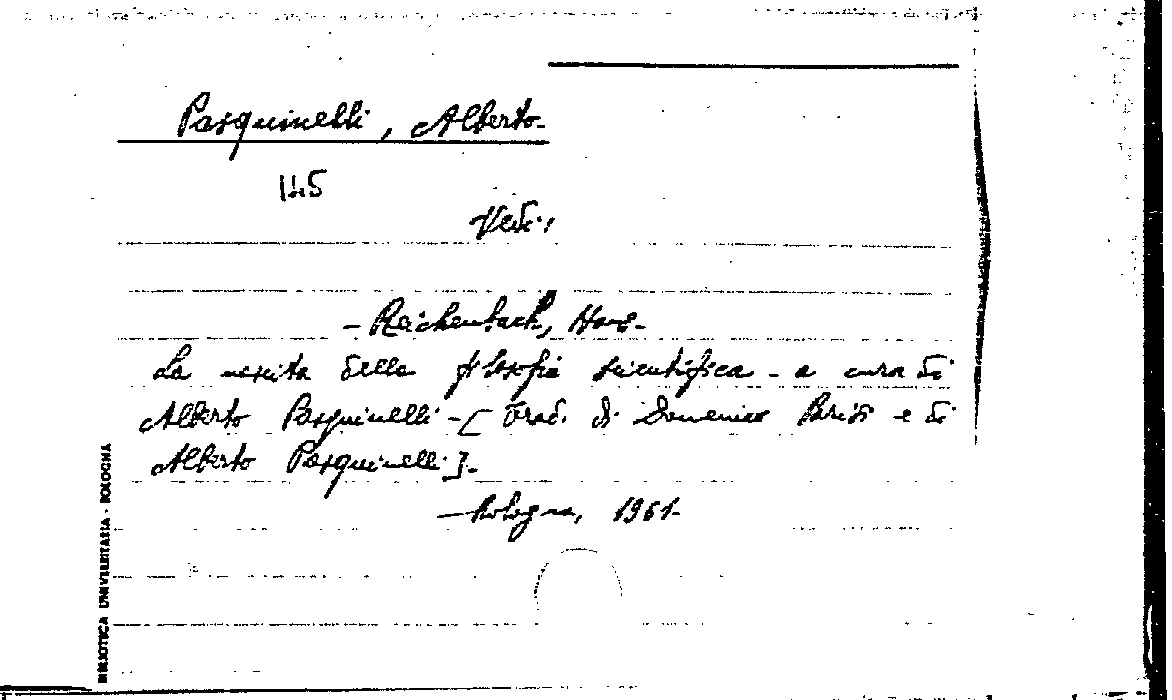 Pasquinelli, Alberto-
145
Vedi:
- Reichenbach, Hans-
La nascita della filosofia scientifica - a cura di
Alberto Pasquinelli - [ Trad. di Domenico Parisi e di
Alberto Pasquinelli].
- Bologna, 1961-
BIBLIOTECA UNIVERSITARIA - BOLOGNA